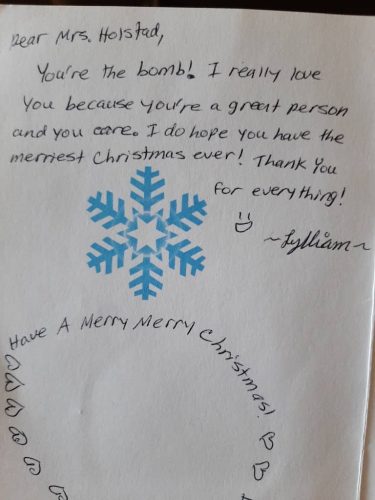 Dear Mrs. Holstad,
You're the bomb! I really love
You because you're a great person
and you care. I do hope you have the
merriest Christmas ever! Thank You
for everything!
~Lylliam~
Have A Merry Merry Christmas!